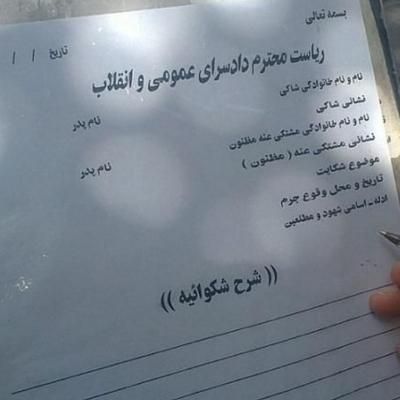 بسمه تعالی
تاریخ / /
ریاست محترم دادسرای عمومی و انقلاب
نام و نام خانوادگی شاکی نام پدر
نشانی شاکی
نام و نام خانوادگی مشتکی عنه مظنون
نشانی مشتکی عنه ( مظنون ) نام پدر
موضوع شکایت
تاریخ و محل وقوع جرم
ادله ـ اسامی شهود و مطلعین
(( شرح شکوائیه ))